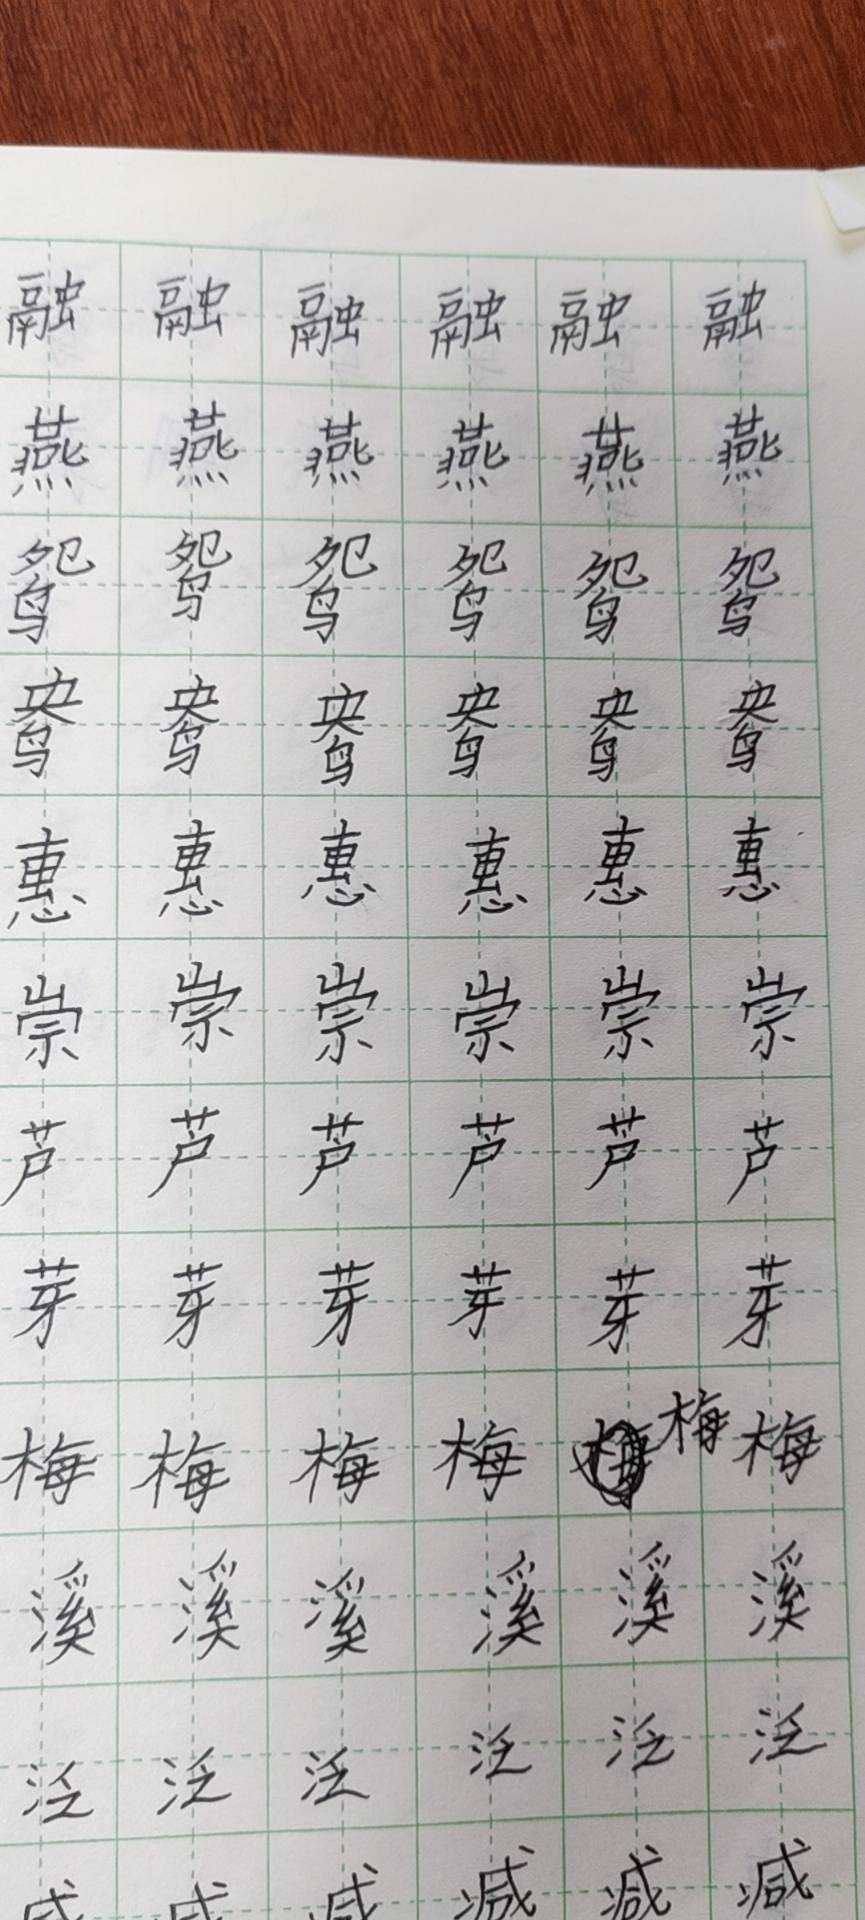 融融融融融融
燕燕燕燕燕燕
鸳鸳鸳鸳鸳鸳
鸯鸯鸯鸯鸯鸯
惠惠惠惠惠惠
崇崇崇崇崇崇
芦芦芦芦芦芦
芽芽芽芽芽芽
梅梅梅梅梅梅
溪溪溪溪溪溪
泛泛泛泛泛泛
减减减减减减